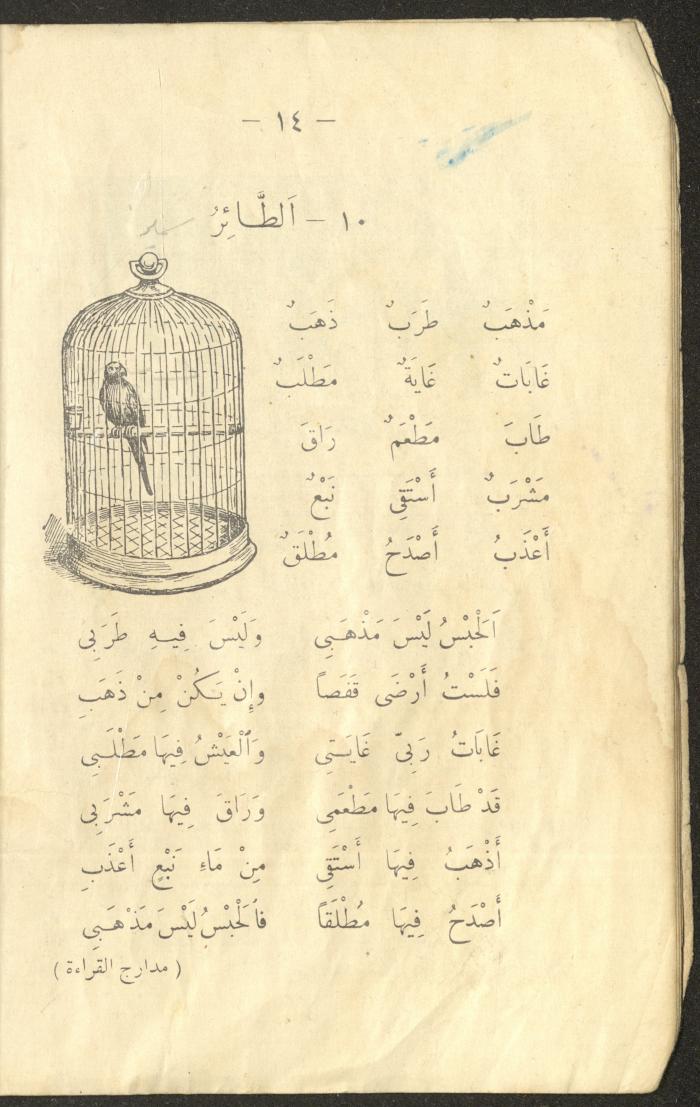 – ١٤ –
١٠ – اَلطَّائِرُ
مَذْهَبٌ طَرَبٌ ذَهَبٌ
غَابَاتٌ غَايَةٌ مَطْلَبٌ
طَابَ مَطْعَمٌ رَاقَ
مَشْرَبٌ أَسْتَقِي نَبْعٌ
أَعْذَبُ أَصْدَحُ مُطْلَقٌ
اَلْحَبْسُ لَيْسَ مَذْهَبِي وَلَيْسَ فِيهِ طَرَبِي
فَلَسْتُ أَرْضَى قَفَصاً وإِنْ يَكُنْ مِنْ ذَهَبِ
غَابَاتُ رَبِيّ غَايَتِي وَالْعَيْشُ فِيهَا مَطْلَبِي
قَدْ طَابَ فِيهَا مَطْعَمِي وَرَاقَ فِيهَا مَشْرَبِي
أَذْهَبُ فِيهَا أَسْتَقِي مِنْ مَاءِ نَبْعٍ أَعْذَبِ
أَصْدَحُ فِيهَا مُطْلَقاً فاَلْحَبْسُ لَيْسَ مَذْهَبِي
( مدارج القراءة )